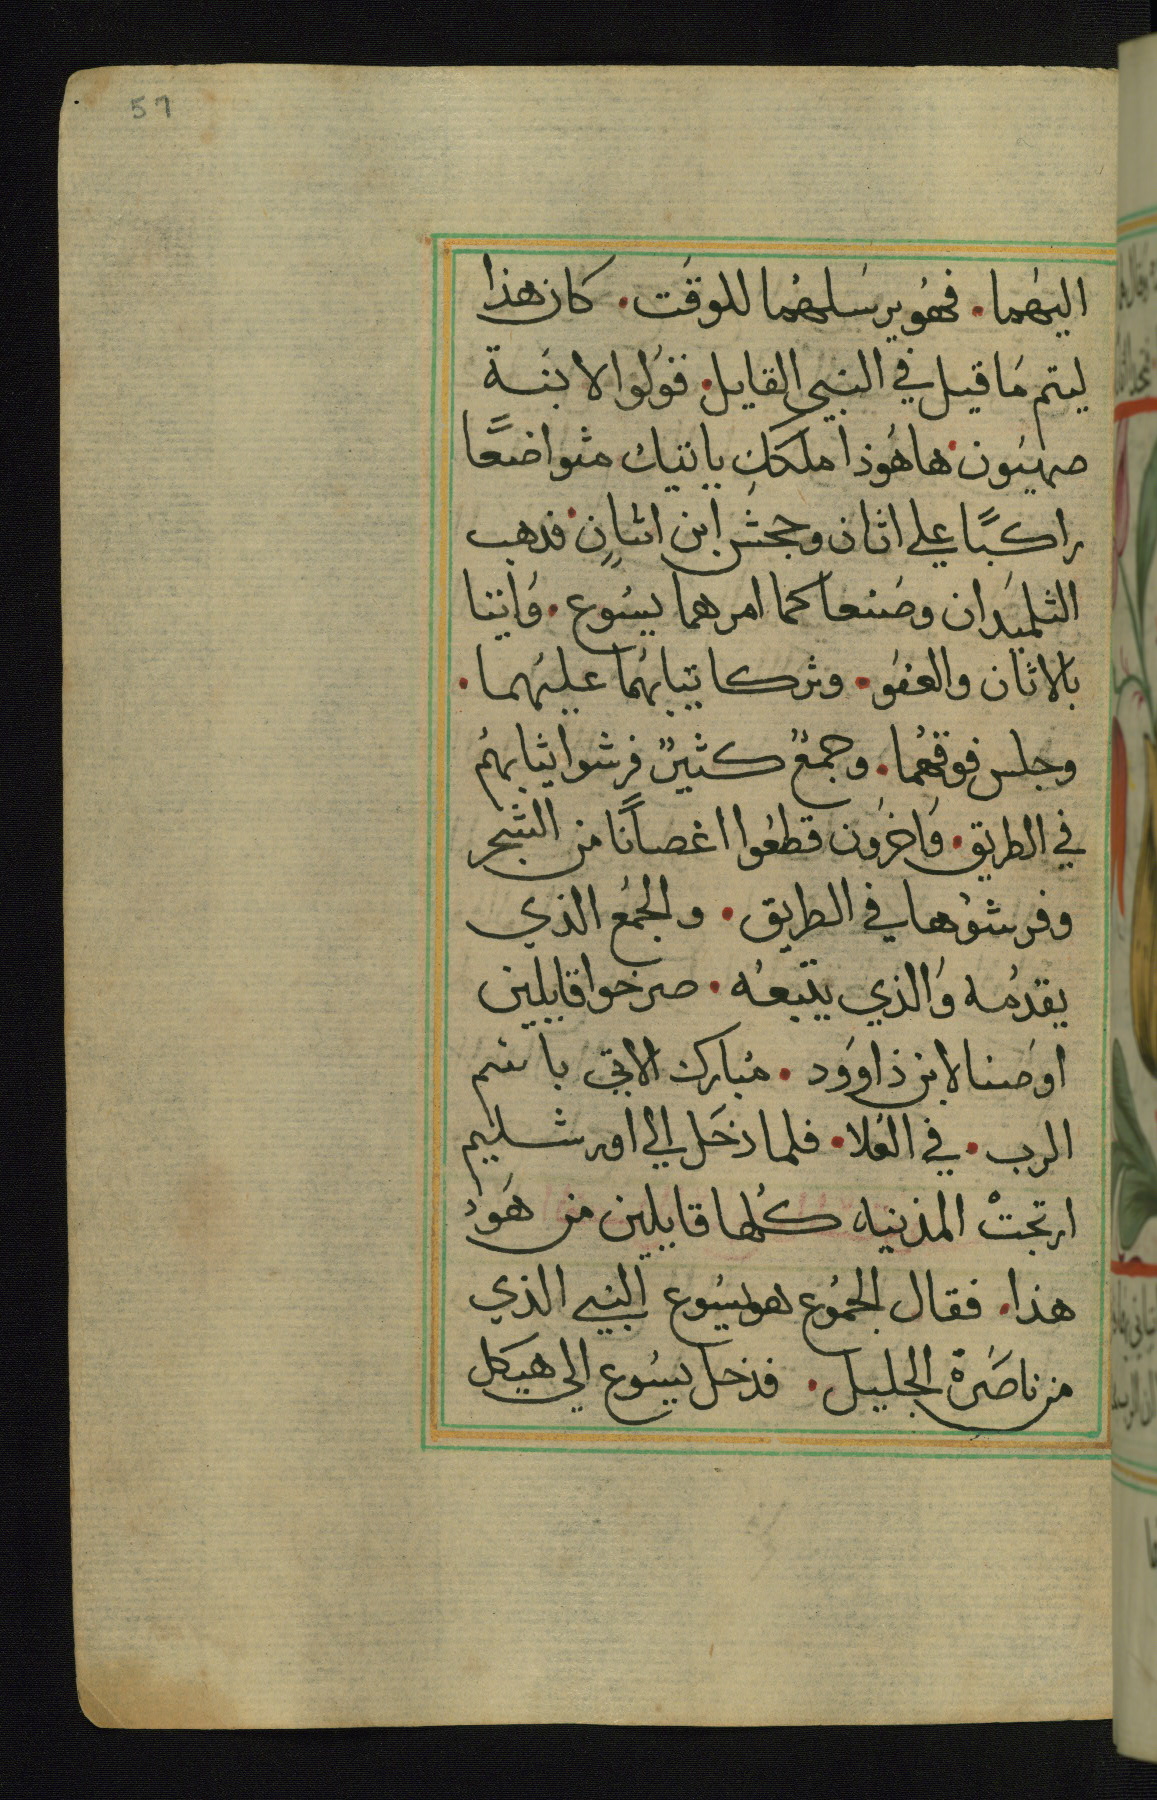 57
اليهما. فهو يرسلهما للوقت. كان هذا
ليتم ما قيل في النبي القايل. قولوا لابنة
صهيون. ها هوذا ملككِ ياتيك متواضعًا
راكبًا علي اتان وجحش ابن اتانٍ. فدهب
التلميدان وصنعا كما امرهما يسوع. واتيا
بالاتان والعفو. وتركا تيابهما عليهما.
وجلس فوقهما. وجمعٌ كثيرٌ فرشوا ثيابهم
في الطريق. واخرون قطعوا اغصانًا من الشجر
وفرشوها في الطريق. والجمع الذي
يقدمه والذي يتبعه. صرخوا قايلين
اوصنا لابن داوود. مبارك الاتي باسم
الرب. في العلا. فلما دخل الي اورشليم
ارتجتْ المدينه كلها قايلين من هو
هذا. فقال الجموع هو يسوع النبي الذي
من ناصرة الجليل. فدخل يسوع الي هيكل